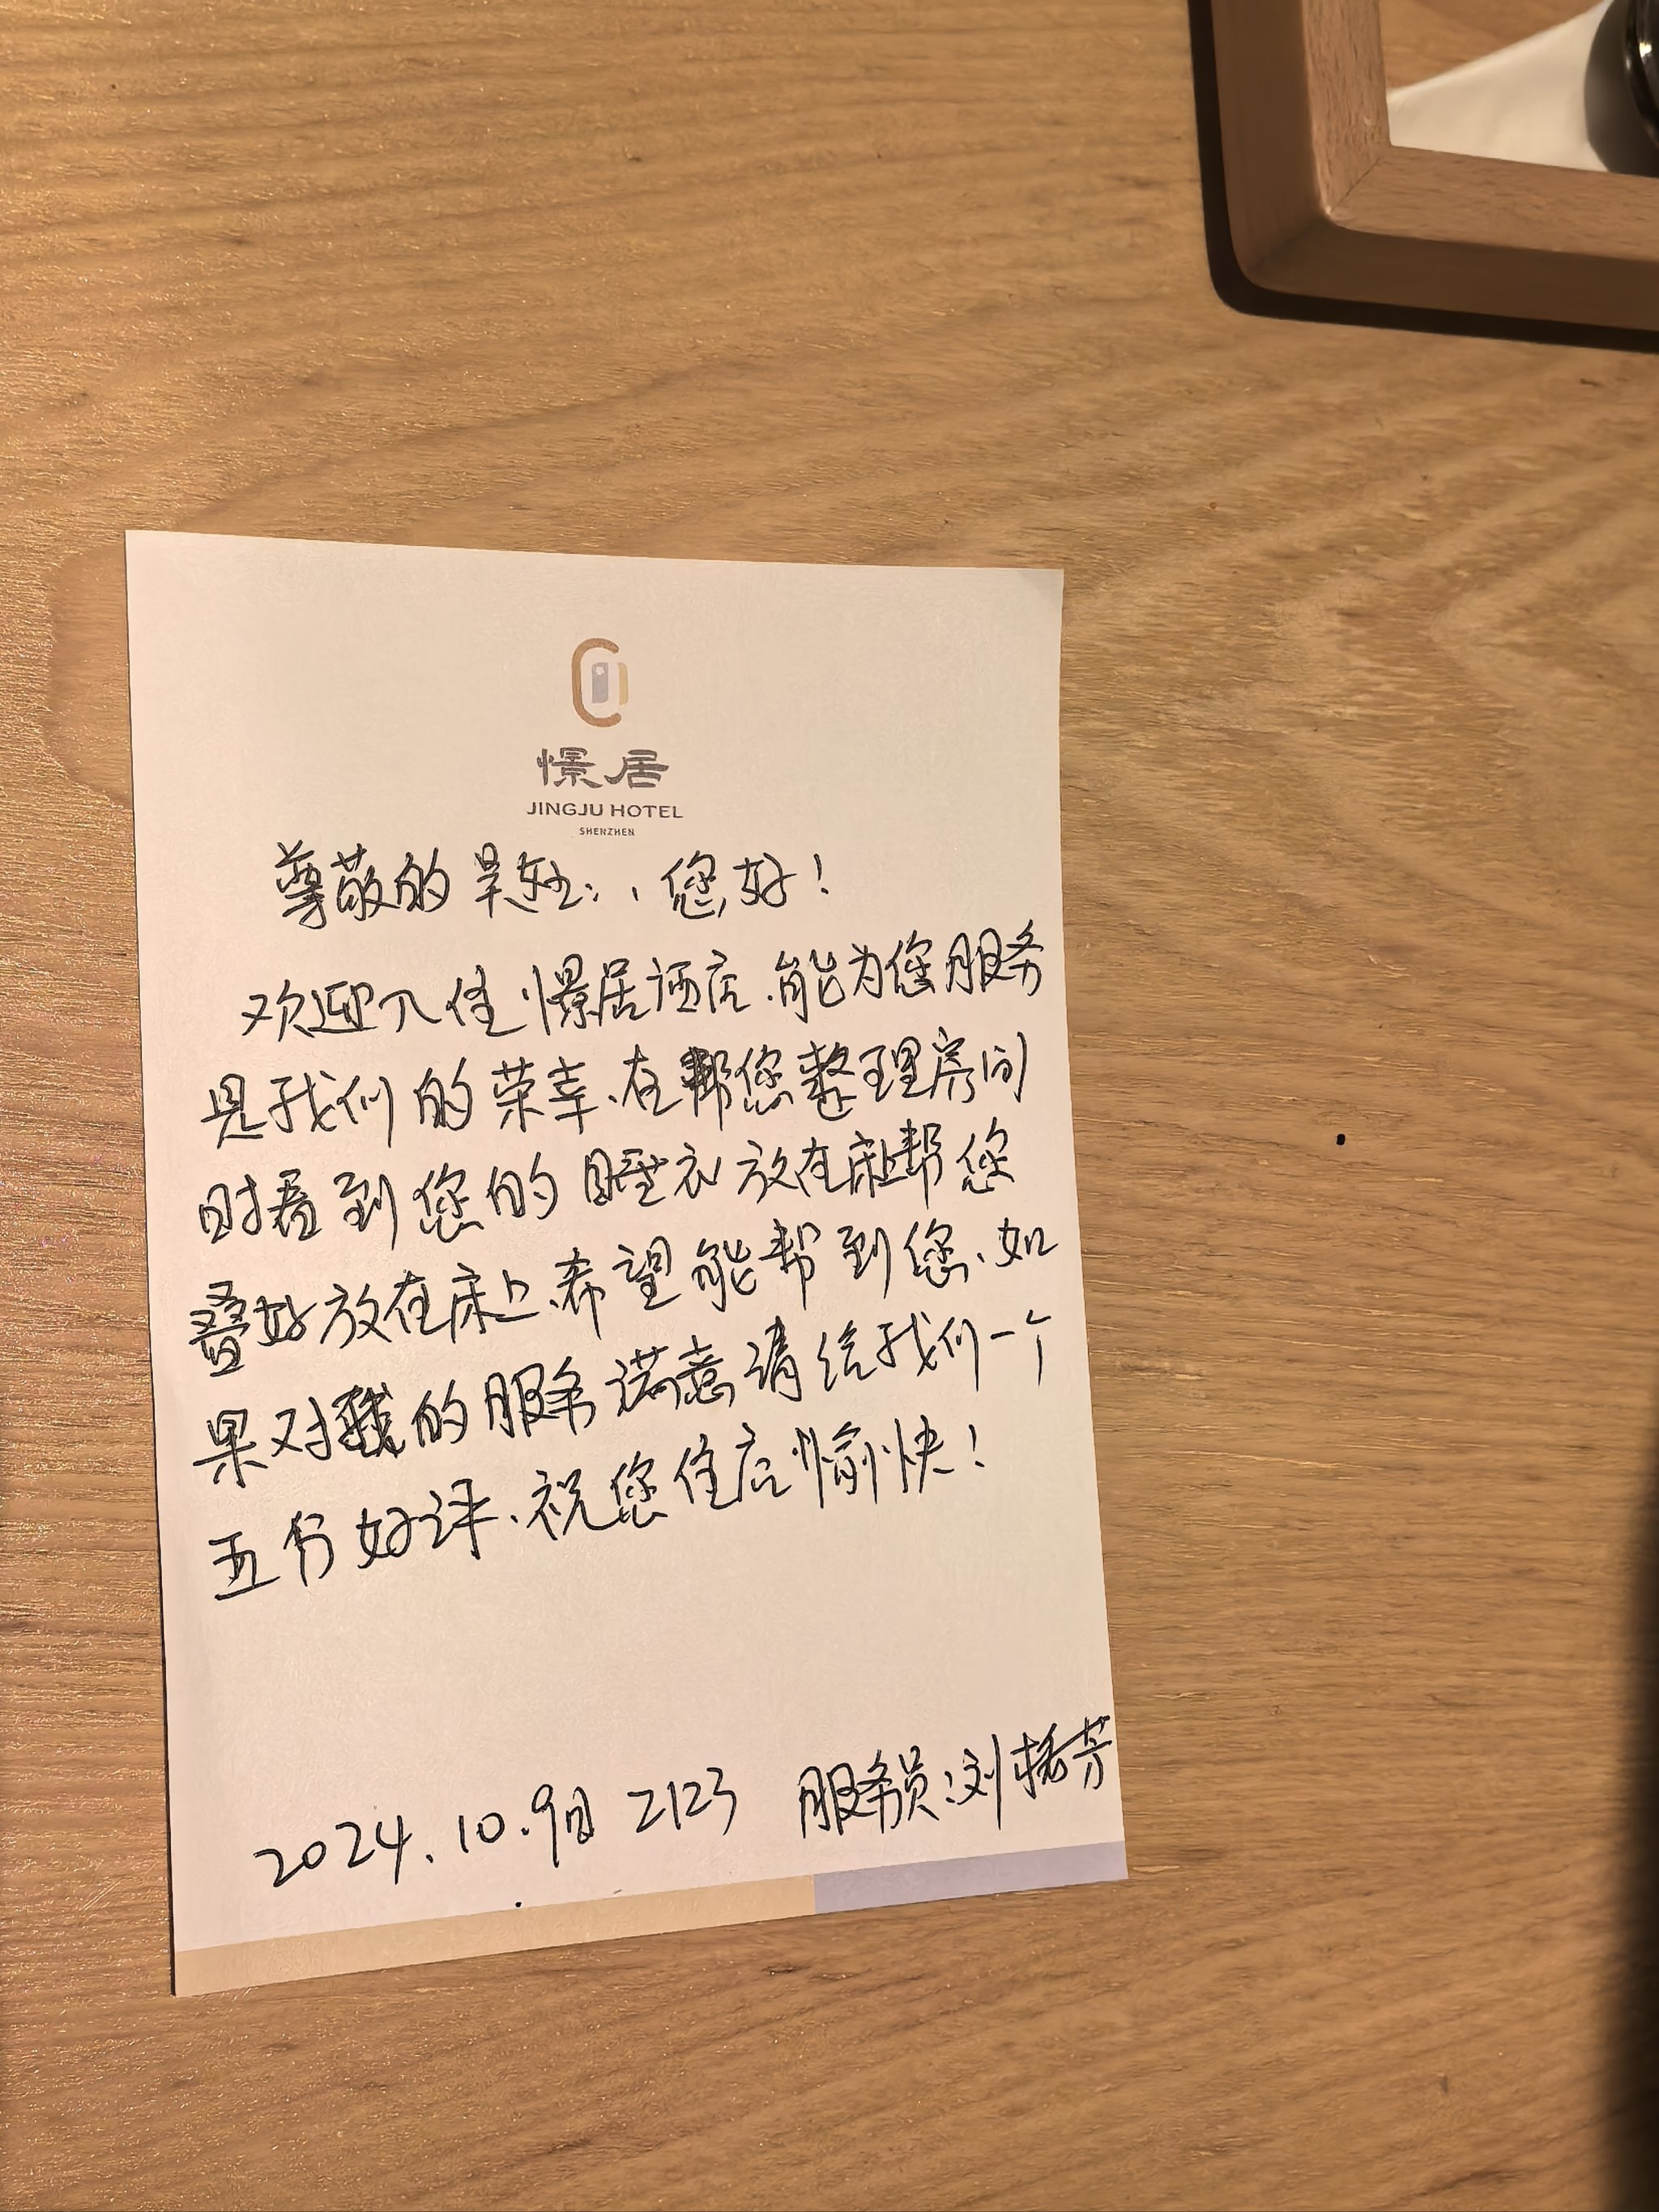 憬居
JINGJU HOTEL
SHENZHEN
尊敬的吴姓:,您好!
欢迎入住憬居酒店.能为您服务
是我们的荣幸、在帮您整理房间
时看到您的睡衣放在床上帮您
叠好放在床上、希望能帮到您、如
果对我的服务满意请给我们一个
五分好评、祝您住店愉快!
2024.10.9日 2123 服务员:刘 芳